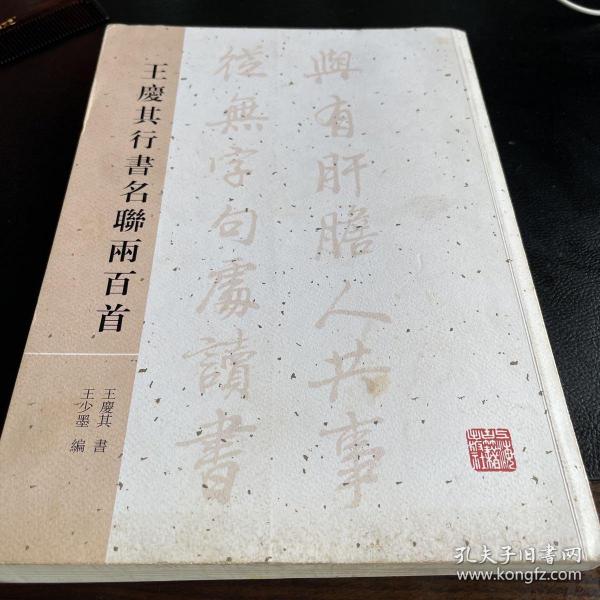 王慶其行書名聯兩百首
王慶其 書
王少墨 編
與有肝膽人共事
從無字句處讀書
上海古籍出版社
孔夫子旧书网
www.kongfz.com